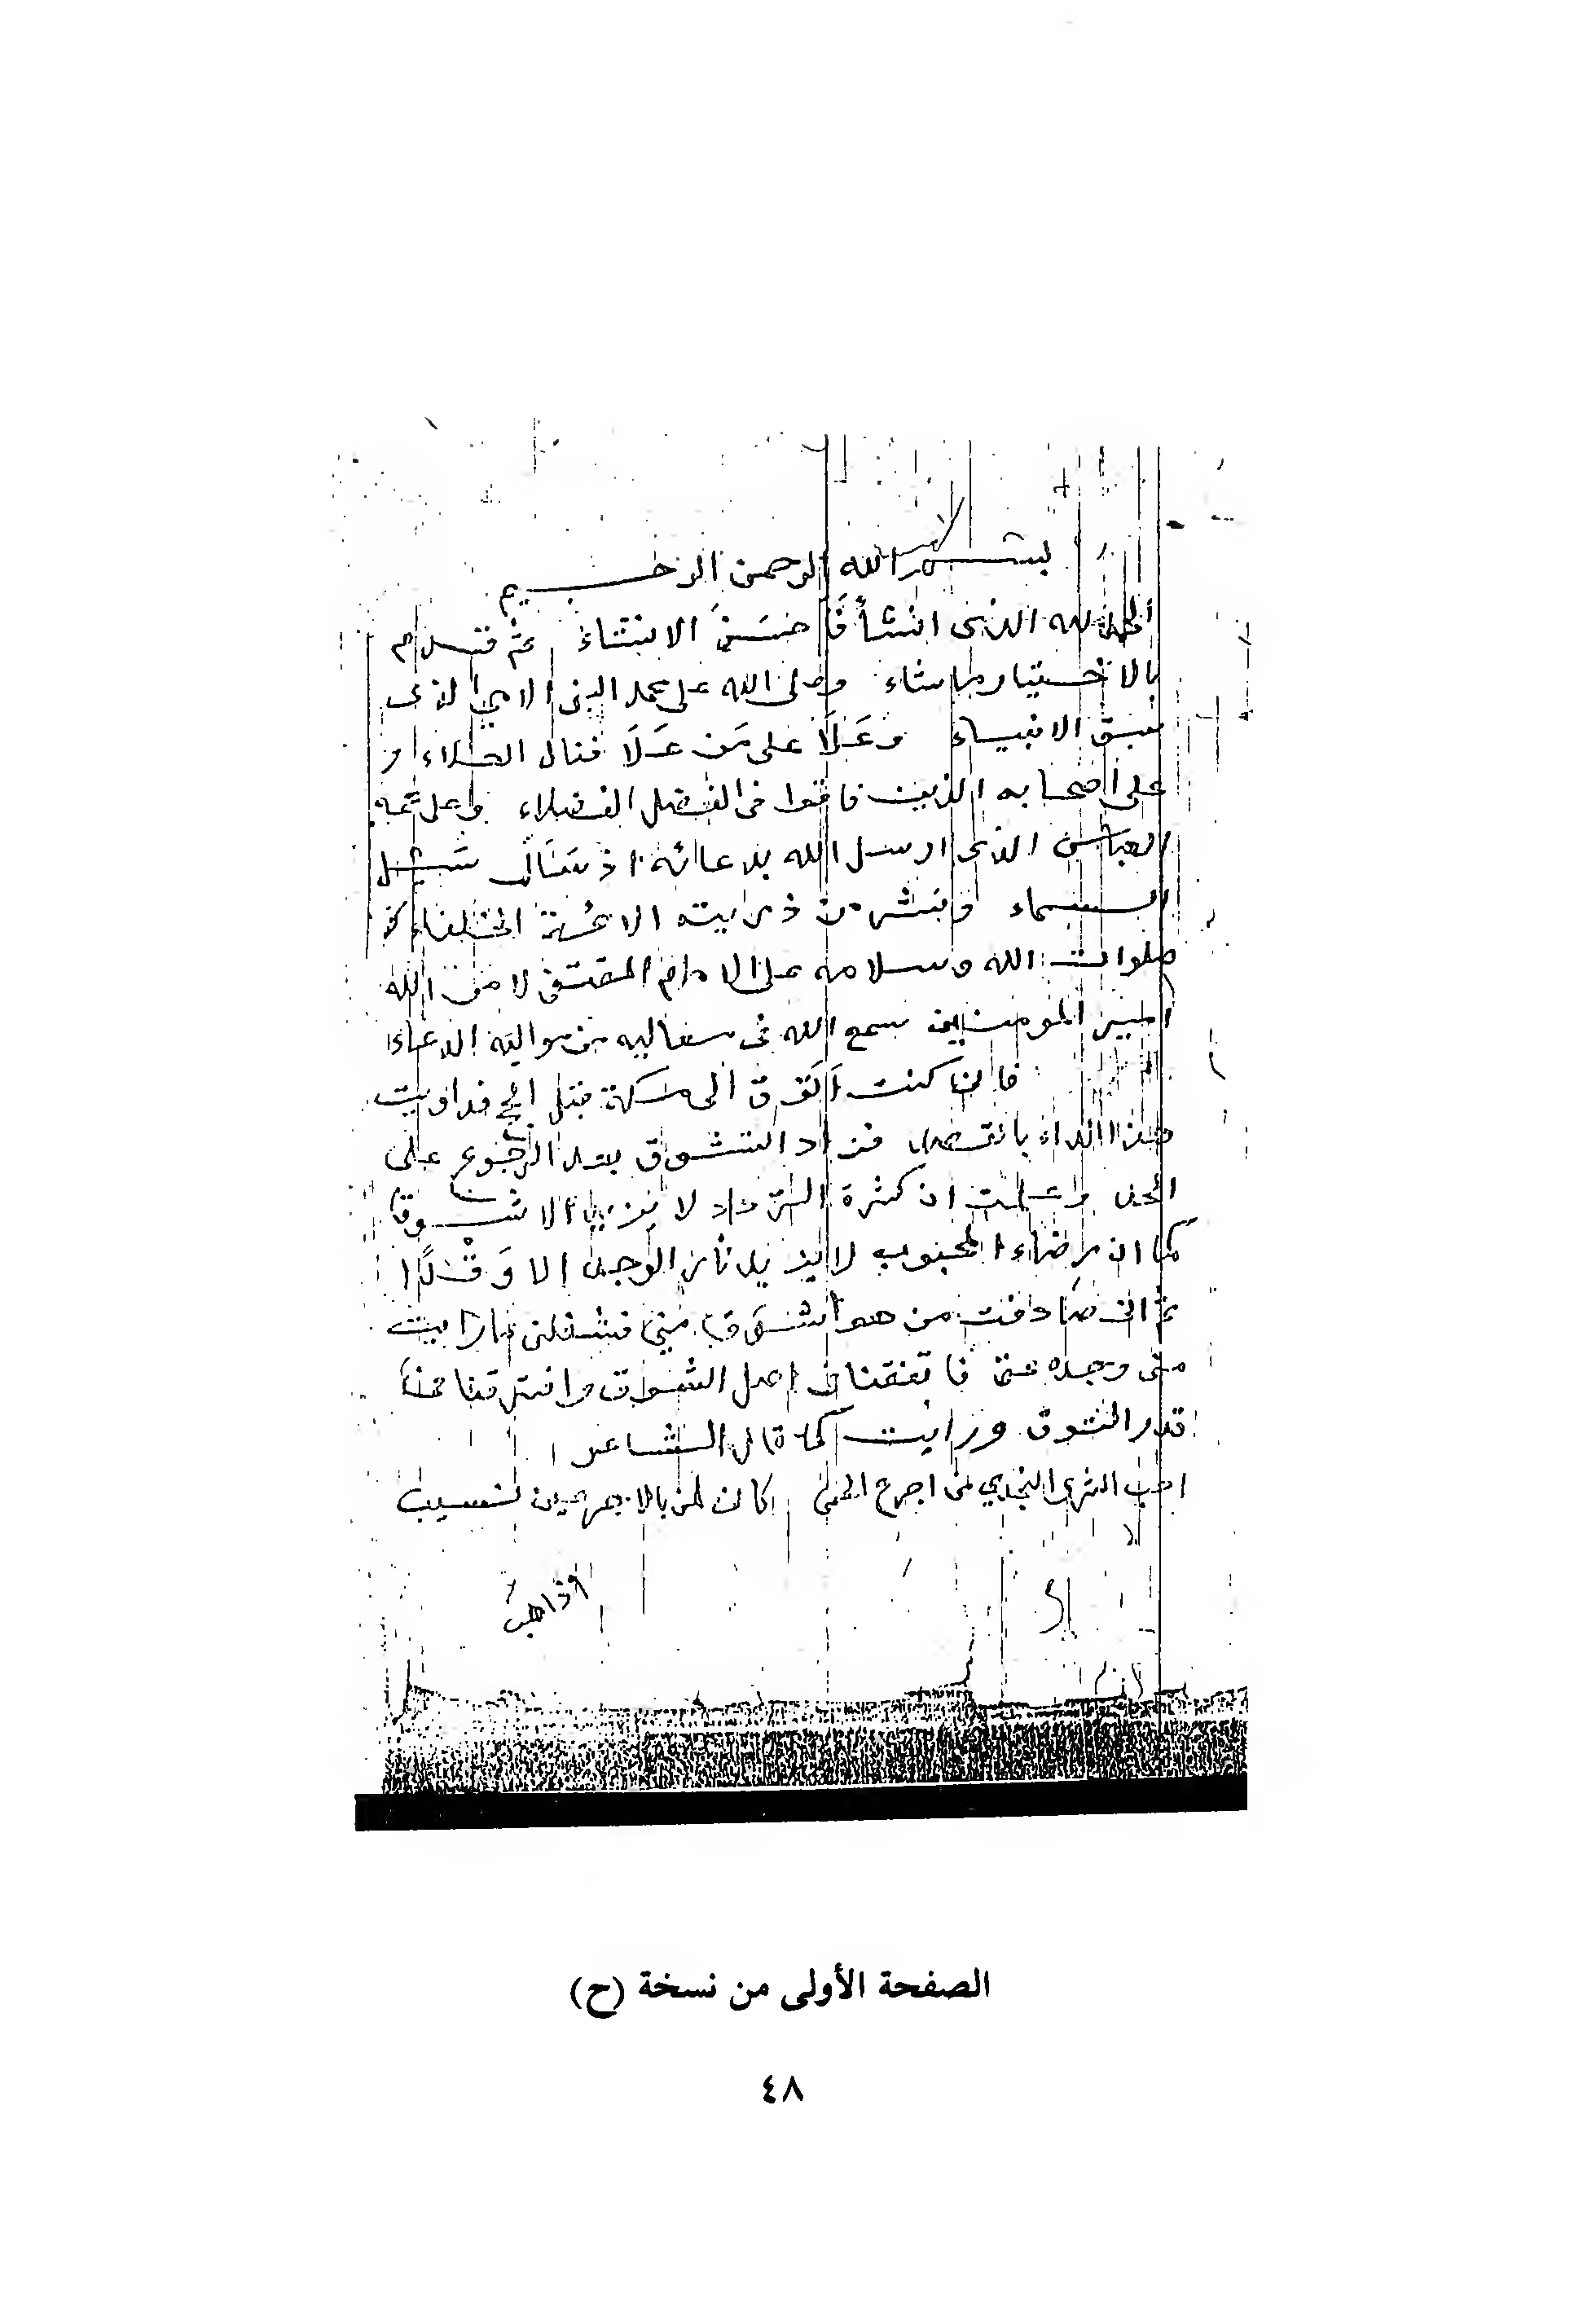 بسم الله الرحمن الرحيم
الحمد لله الذى انشأ فَاحسَنَ الانشاءَ ثم قسم
بالاختيار ما شاء وصلى الله على محمد النبى الامي الذى
سبق الانبياء وعَلَا على مَن عَلَا فنال العلاء و
على اصحابه الذين فاقوا فى الفضل الفضلاء وعلى عمه
العباس الذى ارسل الله بدعائه اذ سَأَل سَيْل
السماء ونشر من ذريته الائمة الخلفاء
صلوات الله وسلامه على الامام المقتفى لامر الله
امير المومنين سمع الله فى معاليه من مواليه الدعاء
فانى كنت اتوق الى مكة قبل الحج فداويت
هذا الداء بالقصد فزاد التشوق بعد الرجوع على
الحد وعلمت ان كثرة الترداد لا يزيد الا شوقا
كما ان رضاء المحبوب لا يزيد نار الوجد الا وَقْدًا
ثم انى صَادفت من هو اشوق مني فشغلنى ما رايت
من وجده عنى فاتفقنا فى اصل الشوق وافترقنا فى
قدر التوق ورايت كما قال الشاعر
احب الثرى النجدي من اجرع الحمى كان لمن بالاجرعين نسيب
اذا هبّ
الصفحة الأولى من نسخة (ح)
٤٨